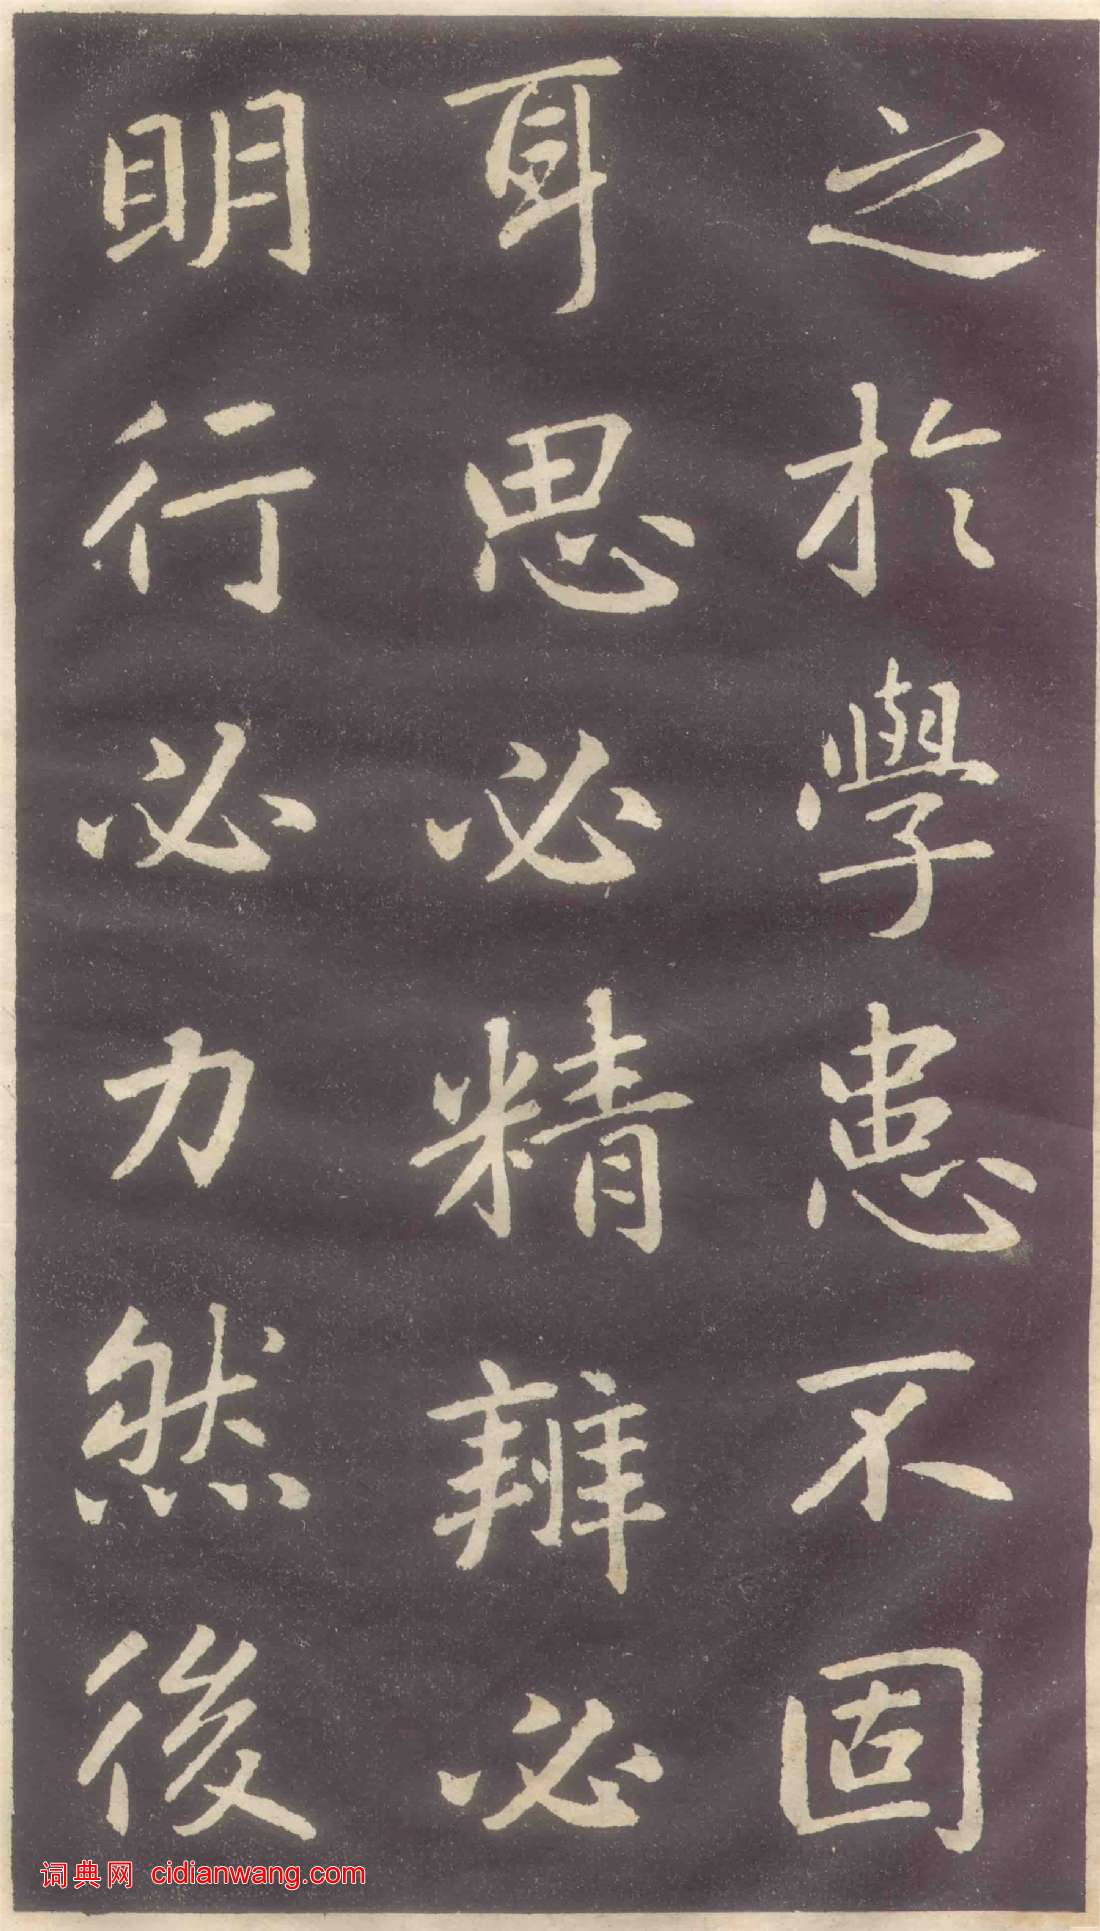 之於學患不固
耳思必精辨必
明行必力然後
词典网 cidianwang.com